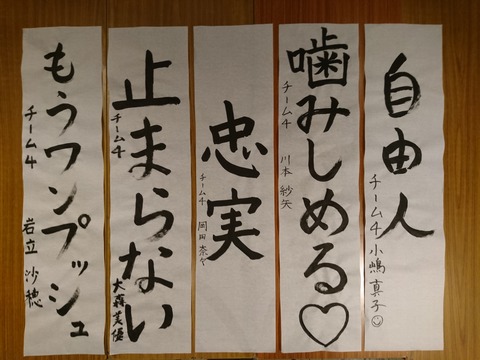 自由人
チーム4 小嶋真子☺
噛みしめる♡
チーム4 川本紗矢
忠実
チーム4 岡田奈々
止まらない
チーム4 大森美優
もうワンプッシュ
チーム4 岩立沙穂